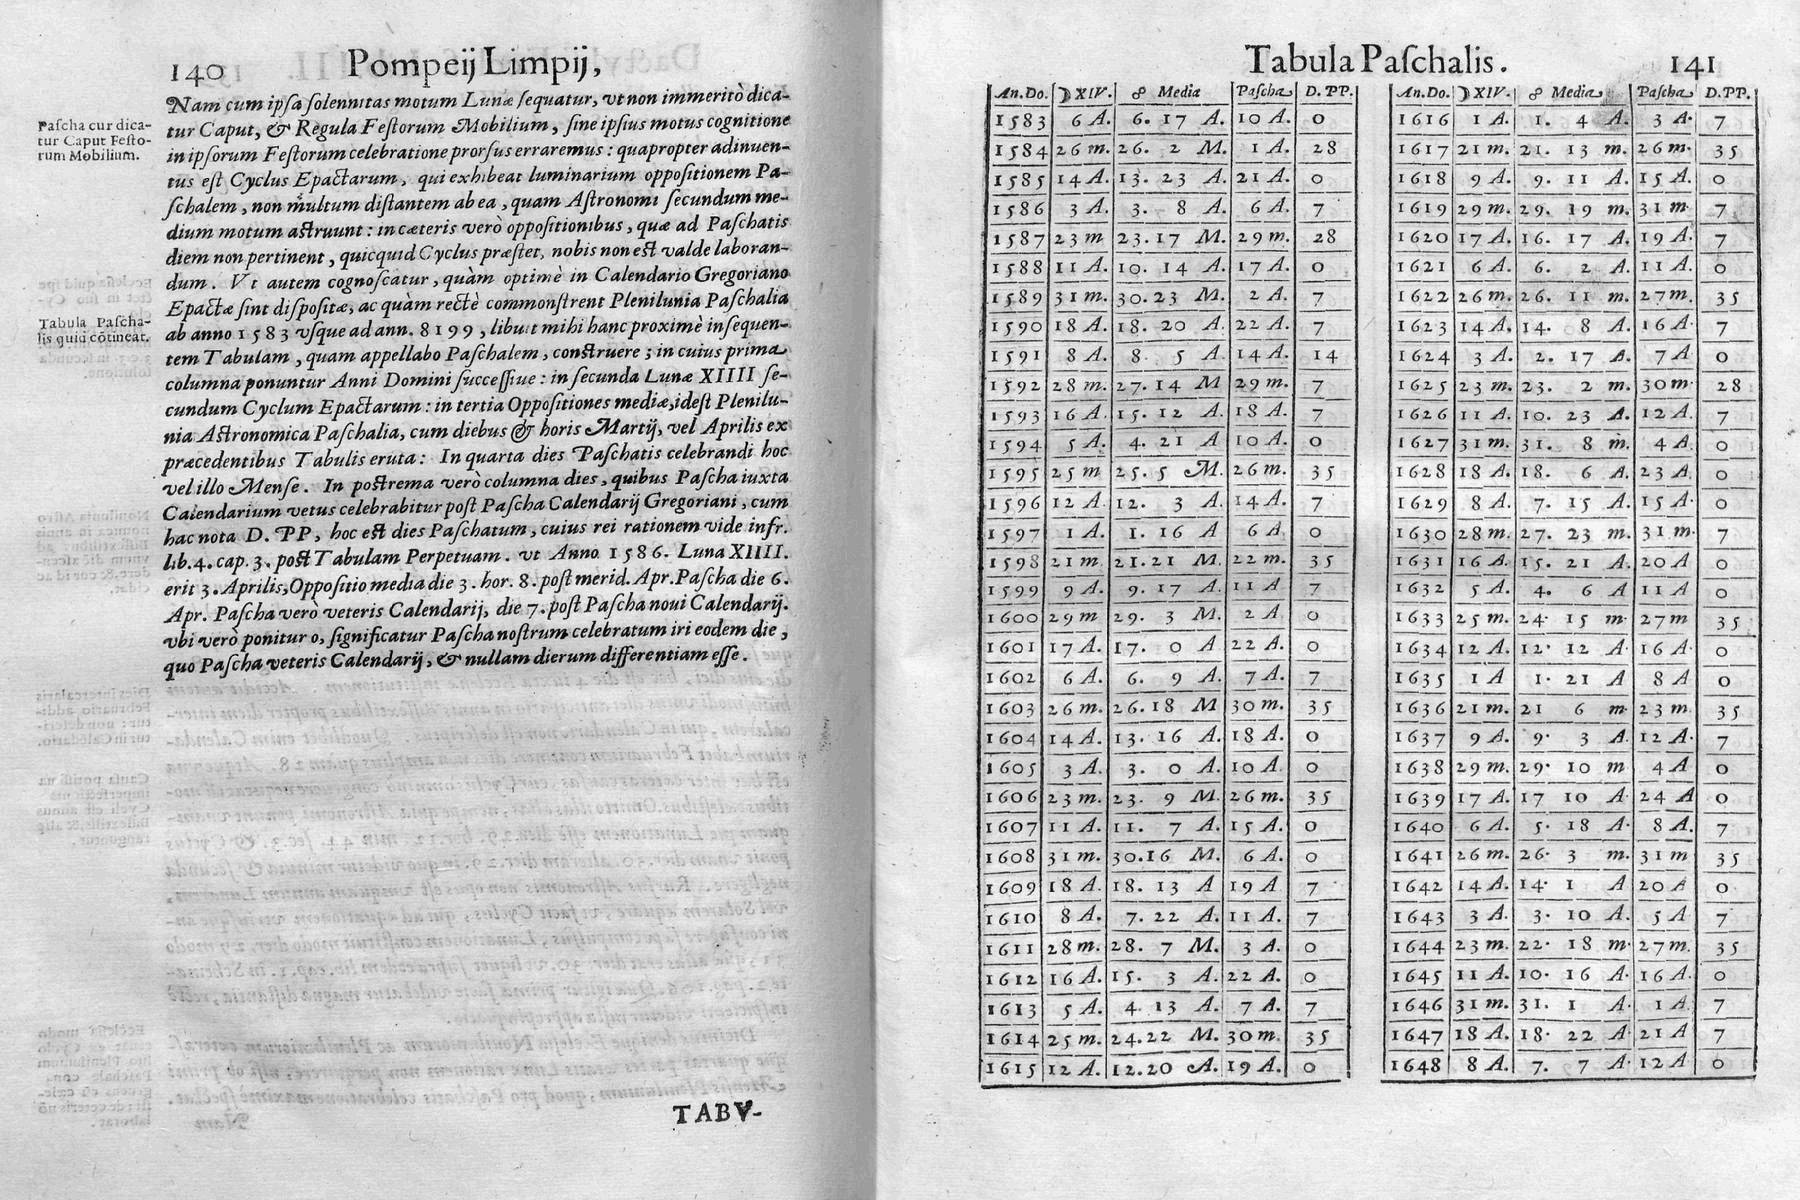 140 Pompeij Limpij,
Nam cum ipſa ſolennitas motum Lunæ ſequatur, vt non immeritò dica-
tur Caput, & Regula Feſtorum Mobilium, ſine ipſius motus cognitione
in ipſorum Feſtorum celebratione prorſus erraremus: quapropter adinuen-
tus eſt Cyclus Epactarum, qui exhibeat luminarium oppoſitionem Pa-
ſchalem, non multum diſtantem ab ea, quam Aſtronomi ſecundum me-
dium motum aſtruunt: in cæteris verò oppoſitionibus, quæ ad Paſchatis
diem non pertinent, quicquid Cyclus præſtet, nobis non eſt valde laboran-
dum. Vt autem cognoſcatur, quàm optimè in Calendario Gregoriano
Epactæ ſint diſpoſitæ, ac quàm rectè commonſtrent Plenilunia Paſchalia
ab anno 1583 vſque ad ann. 8199, libuit mihi hanc proximè inſequen-
tem Tabulam, quam appellabo Paſchalem, conſtruere; in cuius prima
columna ponuntur Anni Domini ſucceſſiue: in ſecunda Lunæ XIIII ſe-
cundum Cyclum Epactarum: in tertia Oppoſitiones mediæ, ideſt Plenilu-
nia Aſtronomica Paſchalia, cum diebus & horis Martij, vel Aprilis ex
præcedentibus Tabulis eruta: In quarta dies Paſchatis celebrandi hoc
vel illo Menſe. In poſtrema verò columna dies, quibus Paſcha iuxta
Calendarium vetus celebrabitur poſt Paſcha Calendarij Gregoriani, cum
hac nota D. PP, hoc eſt dies Paſchatum, cuius rei rationem vide infr.
lib. 4. cap. 3. poſt Tabulam Perpetuam. vt Anno 1586. Luna XIIII.
erit 3. Aprilis, Oppoſitio media die 3. hor. 8. poſt merid. Apr. Paſcha die 6.
Apr. Paſcha verò veteris Calendarij, die 7. poſt Paſcha noui Calendarij.
vbi verò ponitur 0, ſignificatur Paſcha noſtrum celebratum iri eodem die,
quo Paſcha veteris Calendarij, & nullam dierum differentiam eſſe.
TABV-
Paſcha cur dica-
tur Caput Feſto-
rum Mobilium.
Tabula Paſcha-
lis quid cõtineat.
Tabula Paſchalis. 141
An. Do. ☽ XIV. ☍ Media Paſcha D. PP.
1583 6 A. 6. 17 A. 10 A. 0
1584 26 m. 26. 2 M. 1 A. 28
1585 14 A. 13. 23 A. 21 A. 0
1586 3 A. 3. 8 A. 6 A. 7
1587 23 m 23. 17 M. 29 m. 28
1588 11 A. 10. 14 A. 17 A. 0
1589 31 m. 30. 23 M. 2 A. 7
1590 18 A. 18. 20 A. 22 A. 7
1591 8 A. 8. 5 A 14 A. 14
1592 28 m. 27. 14 M 29 m. 7
1593 16 A. 15. 12 A. 18 A. 7
1594 5 A. 4. 21 A 10 A. 0
1595 25 m 25. 5 M. 26 m. 35
1596 12 A. 12. 3 A. 14 A. 7
1597 1 A. 1. 16 A 6 A 0
1598 21 m. 21. 21 M. 22 m. 35
1599 9 A. 9. 17 A. 11 A 7
1600 29 m 29. 3 M. 2 A 0
1601 17 A. 17. 0 A 22 A. 0
1602 6 A. 6. 9 A. 7 A. 7
1603 26 m. 26. 18 M 30 m. 35
1604 14 A. 13. 16 A. 18 A. 0
1605 3 A. 3. 0 A. 10 A. 0
1606 23 m. 23. 9 M. 26 m. 35
1607 11 A. 11. 7 A. 15 A. 0
1608 31 m. 30. 16 M. 6 A. 0
1609 18 A. 18. 13 A 19 A 7
1610 8 A. 7. 22 A. 11 A. 7
1611 28 m. 28. 7 M. 3 A. 0
1612 16 A. 15. 3 A. 22 A. 0
1613 5 A. 4. 13 A. 7 A. 7
1614 25 m. 24. 22 M. 30 m. 35
1615 12 A. 12. 20 A. 19 A. 0
An. Do. ☽ XIV. ☍ Media Paſcha D. PP.
1616 1 A. 1. 4 A. 3 A. 7
1617 21 m. 21. 13 m. 26 m. 35
1618 9 A. 9. 11 A. 15 A. 0
1619 29 m. 29. 19 m. 31 m. 7
1620 17 A. 16. 17 A. 19 A. 7
1621 6 A. 6. 2 A. 11 A. 0
1622 26 m. 26. 11 m. 27 m. 35
1623 14 A. 14. 8 A. 16 A. 7
1624 3 A. 2. 17 A. 7 A 0
1625 23 m. 23. 2 m. 30 m. 28
1626 11 A. 10. 23 A. 12 A. 7
1627 31 m. 31. 8 m. 4 A. 0
1628 18 A. 18. 6 A. 23 A. 0
1629 8 A. 7. 15 A. 15 A. 0
1630 28 m. 27. 23 m. 31 m. 7
1631 16 A. 15. 21 A. 20 A. 0
1632 5 A. 4. 6 A 11 A 0
1633 25 m. 24. 15 m. 27 m 35
1634 12 A. 12. 12 A. 16 A. 0
1635 1 A 1. 21 A 8 A 0
1636 21 m. 21 6 m. 23 m. 35
1637 9 A. 9. 3 A. 12 A. 7
1638 29 m. 29. 10 m 4 A 0
1639 17 A. 17 10 A. 24 A 0
1640 6 A. 5. 18 A. 8 A. 7
1641 26 m. 26. 3 m. 31 m 35
1642 14 A. 14. 1 A 20 A 0
1643 3 A. 3. 10 A. 5 A. 7
1644 23 m. 22. 18 m. 27 m. 35
1645 11 A. 10. 16 A. 16 A. 0
1646 31 m. 31. 1 A. 1 A. 7
1647 18 A. 18. 22 A. 21 A 7
1648 8 A. 7. 7 A. 12 A 0